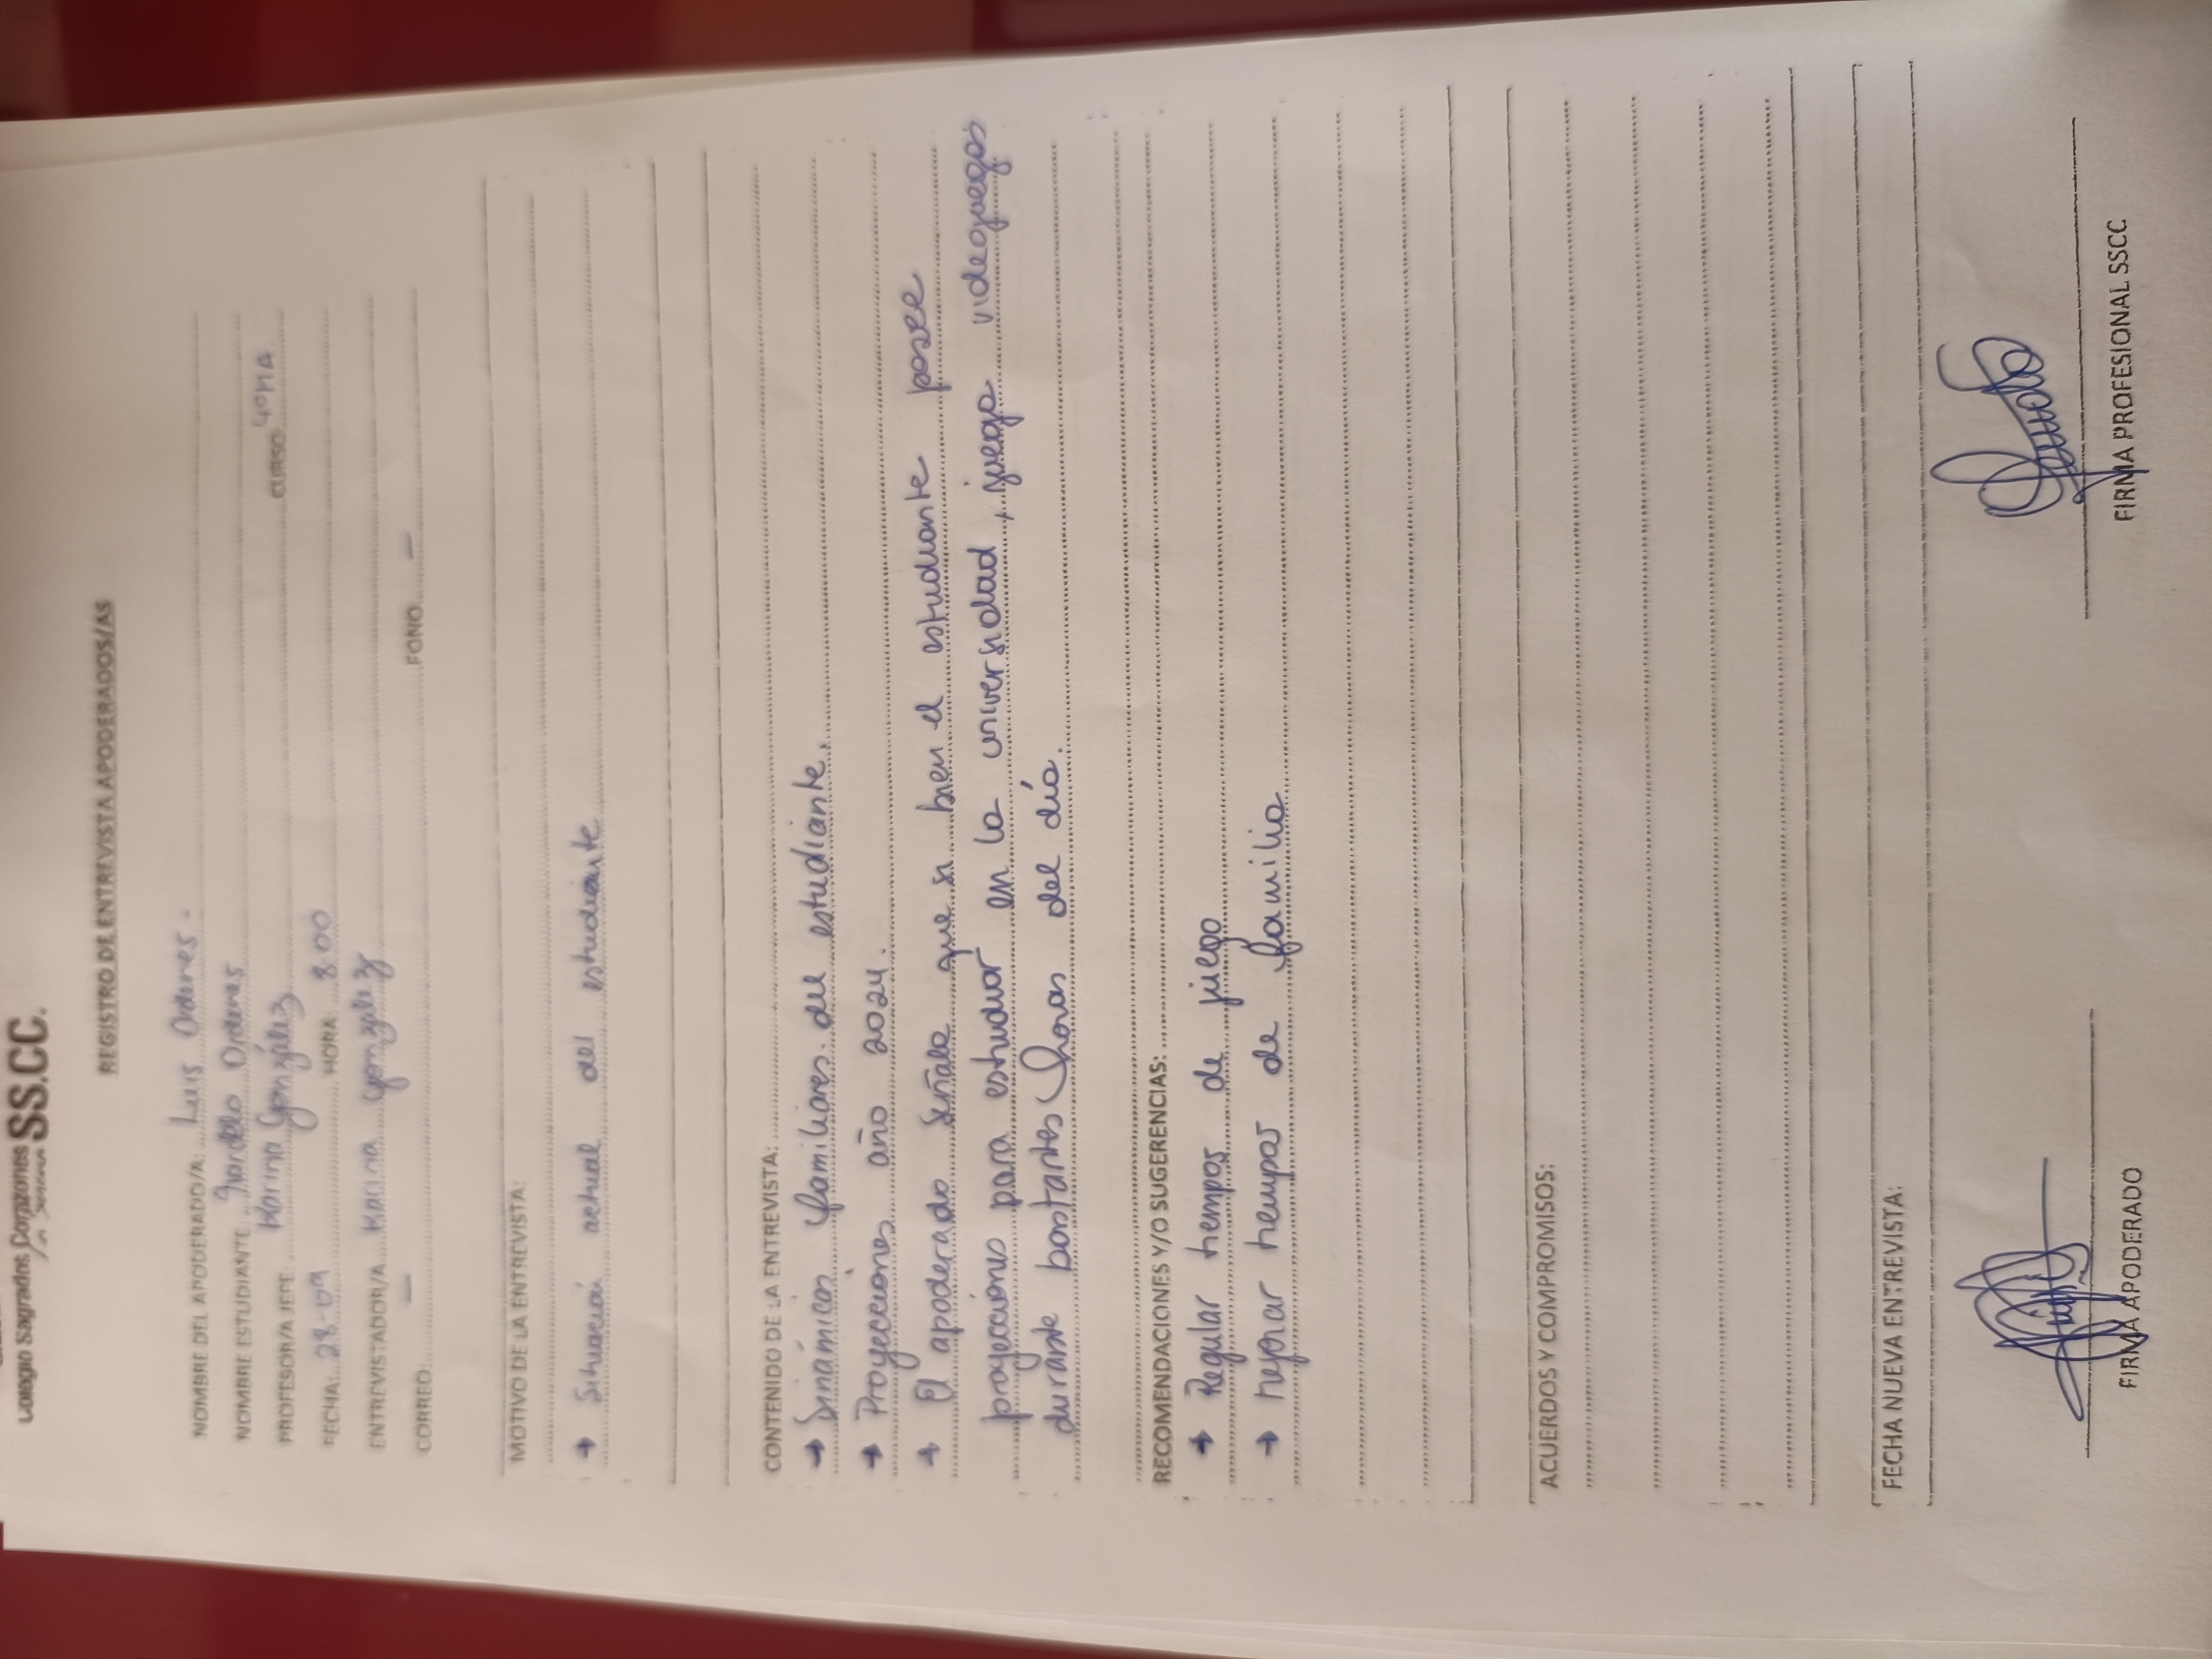 Colegio Sagrados Corazones SS.CC.
REGISTRO DE ENTREVISTA APODERADOS/AS
NOMBRE DEL APODERADO/A: Luis Ordenes -
NOMBRE ESTUDIANTE Ordenes
PROFESOR/A JEFE Marina González CURSO 4°MA
FECHA: 28-09 HORA: 8:00
ENTREVISTADOR/A Marina González
CORREO: — FONO —
MOTIVO DE LA ENTREVISTA:
→ Situación actual del estudiante
CONTENIDO DE LA ENTREVISTA:
→ Dinámicas familiares del estudiante.
→ Proyecciones año 2024.
→ El apoderado señala que si bien el estudiante posee
proyecciones para estudiar en la universidad, juega videojuegos
durante bastantes horas del día.
RECOMENDACIONES Y/O SUGERENCIAS:
→ Regular tiempos de juego
→ Mejorar tiempos de familia
ACUERDOS Y COMPROMISOS:
FECHA NUEVA ENTREVISTA:
FIRMA APODERADO FIRMA PROFESIONAL SSCC